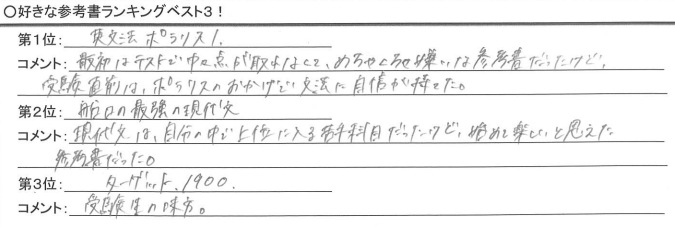 〇好きな参考書ランキングベスト3！
第1位： 英文法ポラリス1.
コメント： 最初はテストで中々点が取れなくて、めちゃくちゃ嫌いな参考書だったけど、
受験直前は、ポラリスのおかげで文法に自信が持てた。
第2位： 船口の最強の現代文
コメント： 現代文は、自分の中で上位に入る苦手科目だったけど、始めて楽しいと思えた
参考書だった。
第3位： ターゲット1900.
コメント： 受験生の味方。